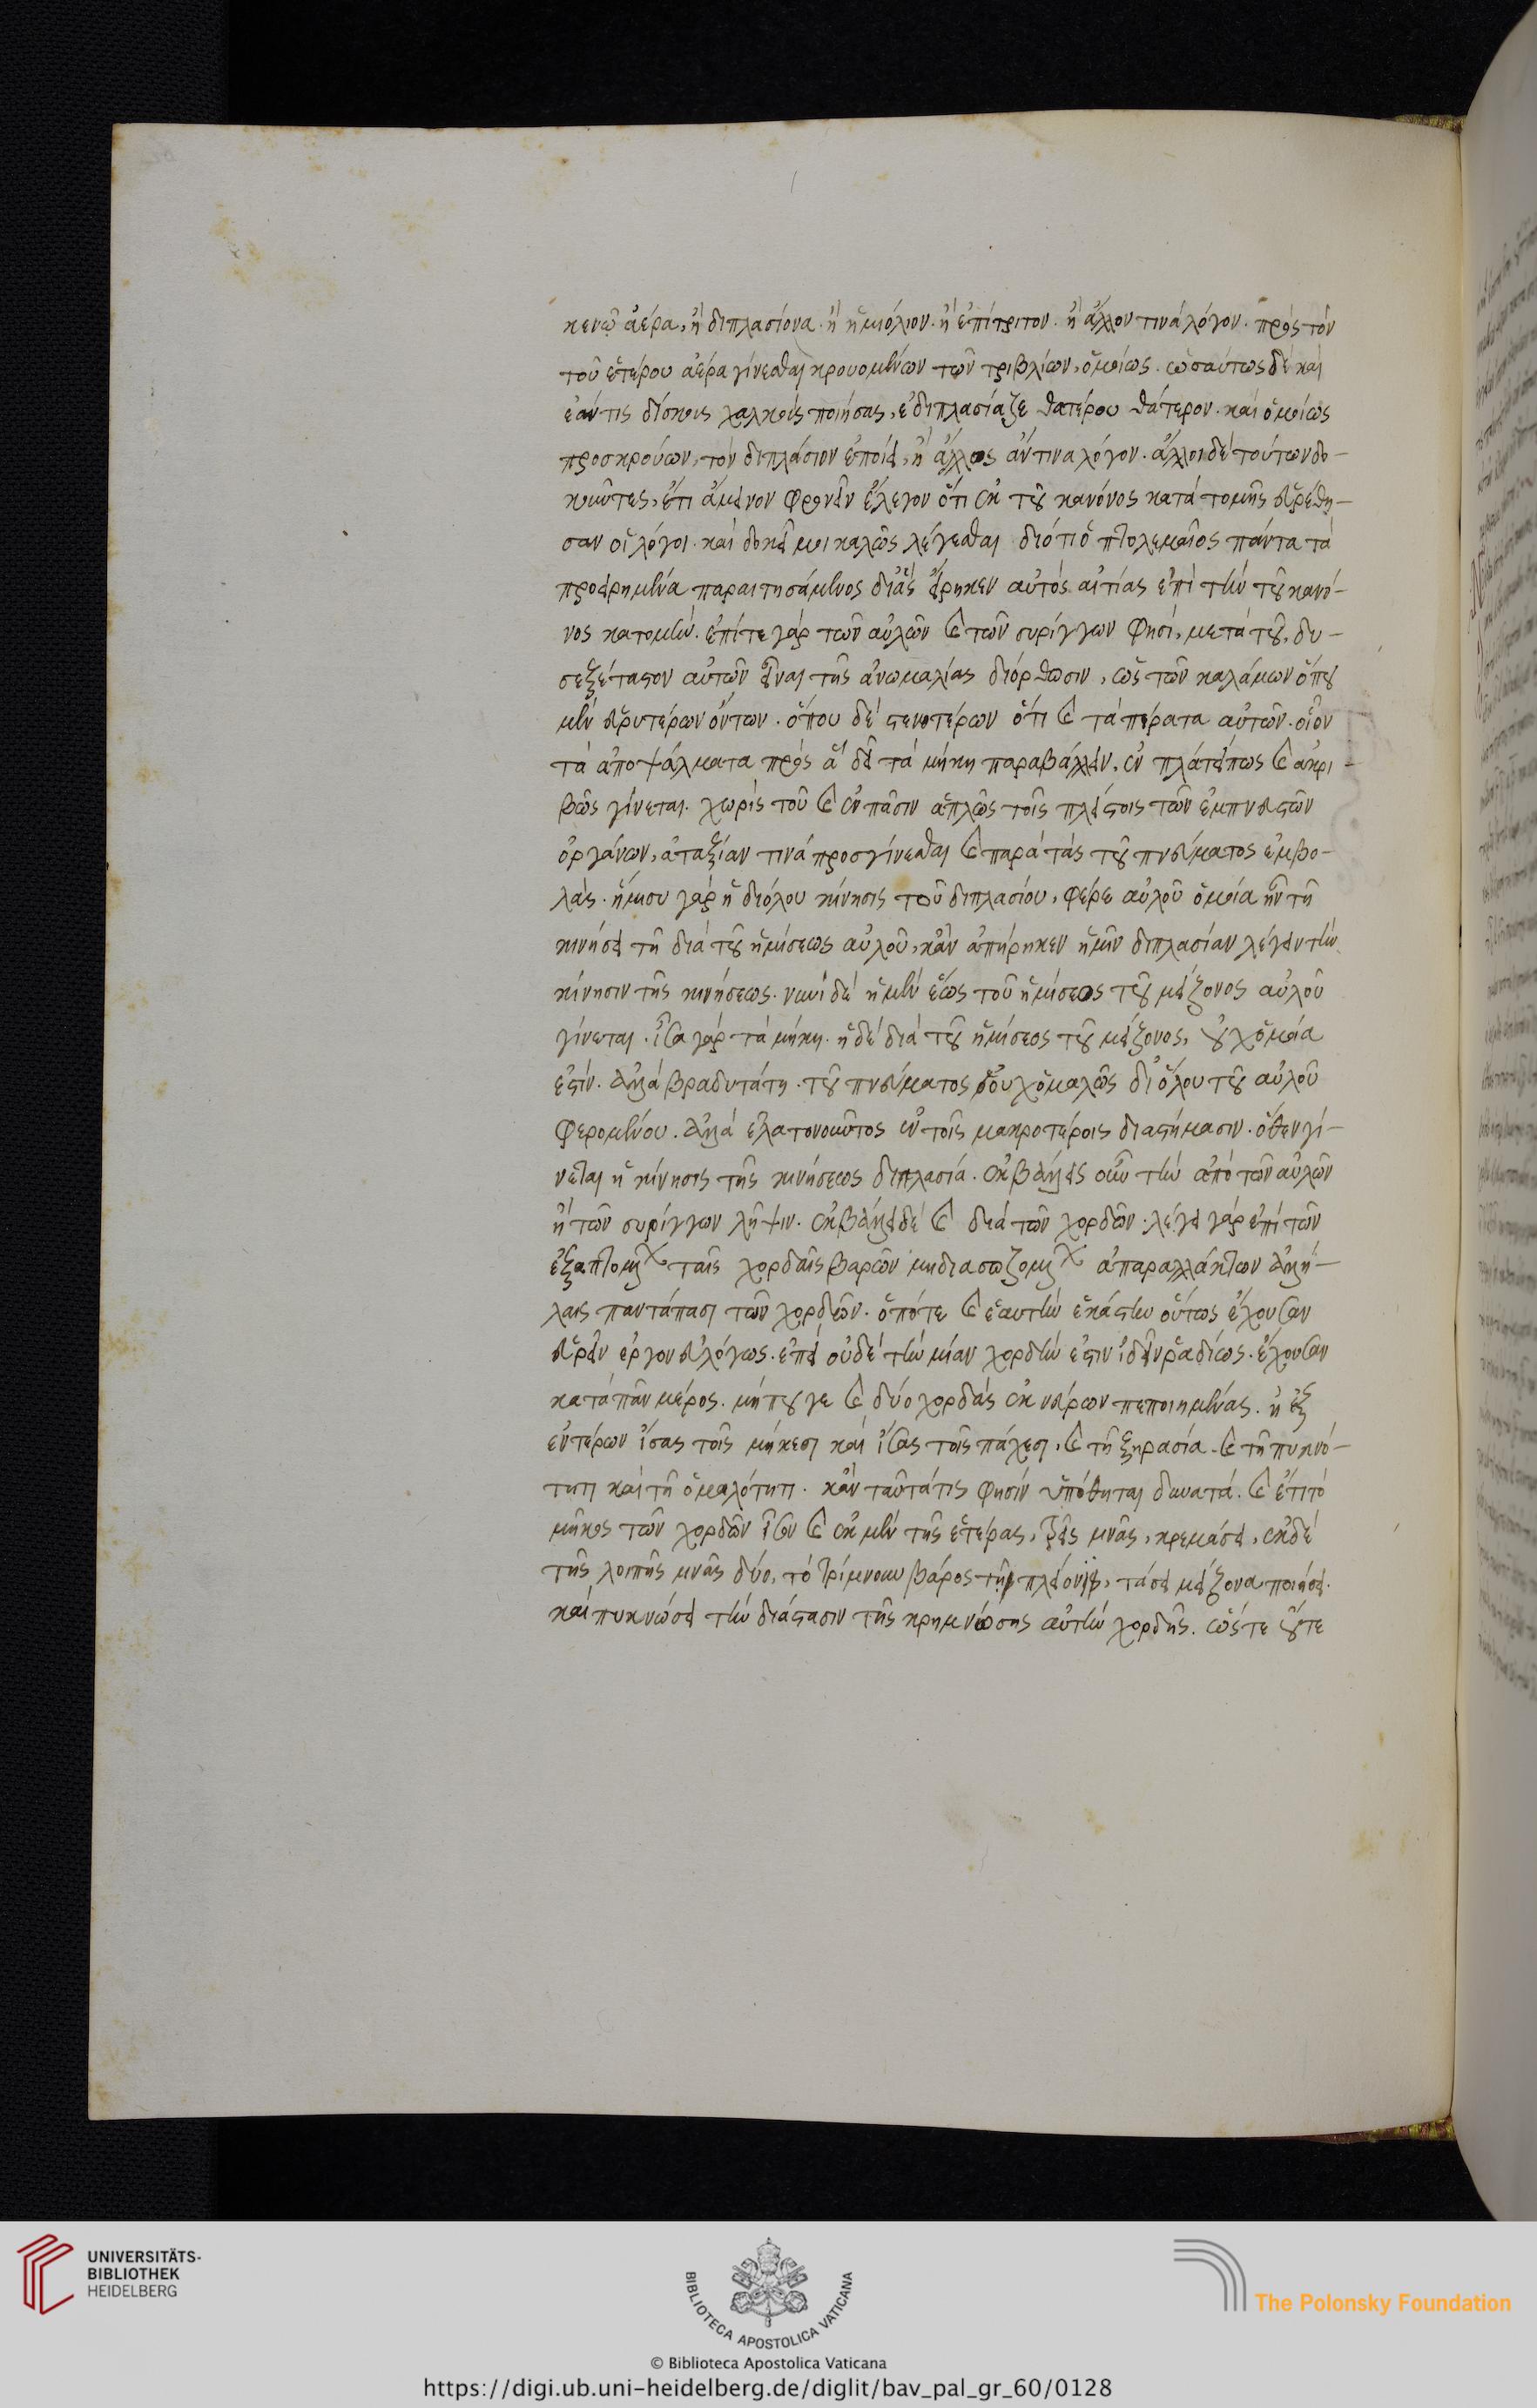 κενῷ ἀέρα, ἢ διπλασίονα. ἢ ἡμιόλιον. ἢ ἐπίτριτον. ἢ ἄλλον τινὰ λόγον. πρὸς τὸν
τοῦ ἑτέρου ἀέρα γίνεσθαι κρουομένων τῶν τριβλίων, ὁμοίως. ὡσαύτως δὲ καὶ
ἐάν τις δίσκους χαλκοῦς ποιήσας, ἐδιπλασίαζε θατέρου θάτερον. καὶ ὁμοίως
προσκρούων, τὸν διπλάσιον ἐποίει, ἢ ἄλλος ἄν τινα λόγον. ἄλλοι δὲ τούτων δο-
κοῦντες, ἔτι ἄμεινον φρονεῖν ἔλεγον ὅτι ἐκ τοῦ κανόνος κατὰ τομῆς εὑρέθη-
σαν οἱ λόγοι. καὶ δοκεῖ μοι καλῶς λέγεσθαι διότι ὁ πτολεμαῖος πάντα τὰ
προειρημένα παραιτησάμενος δι' ἃς εἴρηκεν αὐτὸς αἰτίας ἐπὶ τὴν τοῦ κανό-
νος κατομήν. ἐπί τε γὰρ τῶν αὐλῶν καὶ τῶν συρίγγων φησί, μετὰ τοῦ, δυ-
σεξέταστον αὐτῶν εἶναι τῆς ἀνωμαλίας διόρθωσιν, ὡς τῶν καλάμων ὅπου
μὲν εὐρυτέρων ὄντων. ὅπου δὲ στενοτέρων ὅτι καὶ τὰ πέρατα αὐτῶν. οἷον
τὰ ἀποψάλματα πρὸς ἃ δεῖ τὰ μήκη παραβάλλειν, ἐν πλάτει πως καὶ ἀκρι-
βῶς γίνεται. χωρὶς τοῦ καὶ ἐν πᾶσιν ἁπλῶς τοῖς πλείστοις τῶν ἐμπνευστῶν
ὀργάνων, ἀταξίαν τινὰ προσγίνεσθαι καὶ παρὰ τὰς τοῦ πνεύματος ἐμβο-
λάς. ἥμισυ γὰρ ἡ δι όλου κίνησις τοῦ διπλασίου, φέρε αὐλοῦ ὁμοία ἦν τῇ
κινήσει τῇ διὰ τοῦ ἡμίσεως αὐλοῦ, κἂν ἀπήρηκεν ἡμῖν διπλασίαν λέγειν τὴν
κίνησιν τῆς κινήσεως. νυνὶ δὲ ἡ μὲν ἕως τοῦ ἡμίσεος τοῦ μείζονος αὐλοῦ
γίνεται. ἴσα γὰρ τὰ μήκη. ἡ δὲ διὰ τοῦ ἡμίσεος τοῦ μείζονος, οὐχ ὁμοία
ἐστίν. ἀλλὰ βραδυτάτη. τοῦ πνεύματος οὐχ ὁμαλῶς δι' ὅλου τοῦ αὐλοῦ
φερομένου. ἀλλὰ ἐλατονοῦντος ἐν τοῖς μακροτέροις διαστήμασιν. ὅθεν γί-
νεται ἡ κίνησις τῆς κινήσεως διπλασία. ἐκβάλλει οὖν τὴν ἀπὸ τῶν αὐλῶν
ἢ τῶν συρίγγων λῆψιν. ἐκβάλλει δὲ καὶ διὰ τῶν χορδῶν. λέγει γὰρ ἐπὶ τῶν
ἐξαπτομένων ταῖς χορδαῖς βαρῶν μὴ διασωζομένων ἀπαραλλάκτων ἀλλή-
λαις παντάπασι τῶν χορδῶν. ὁπότε καὶ ἑαυτὴν ἑκάστην οὕτως ἔχουσαν
εὑρεῖν ἔργον εὐλόγως. ἐπεὶ οὐδὲ τὴν μίαν χορδὴν ἐστιν ἰδεῖν ῥαδίως. ἔχουσαν
κατὰ πᾶν μέρος. μήπου γε καὶ δύο χορδὰς ἐκ νεύρων πεποιημένας. ἢ ἐξ
ἐντέρων ἴσας τοῖς μήκεσι καὶ ἴσας τοῖς πάχεσι, καὶ τῇ ξηρασία. καὶ τῇ πυκνό-
τητι καὶ τῇ ὁμαλότητι. κἂν ταῦτά τις φησὶν ὑπόθηται δυνατά. καὶ ἔτι τὸ
μῆκος τῶν χορδῶν ἴσον καὶ ἐκ μὲν τῆς ἑτέρας, τρεῖς μνᾶς, κρεμάσει, ἐκ δὲ
τῆς λοιπῆς μνᾶς δύο, τὸ τρίμνουν βάρος τῇ πλείονι, τάσει μείζονα ποιήσει.
καὶ πυκνώσει τὴν διάστασιν τῆς κρημνώσης αὐτὴν χορδῆς. ὥστε οὔτε
UNIVERSITÄTS-
BIBLIOTHEK
HEIDELBERG
BIBLIOTECA APOSTOLICA VATICANA
© Biblioteca Apostolica Vaticana
The Polonsky Foundation
https://digi.ub.uni-heidelberg.de/diglit/bav_pal_gr_60/0128